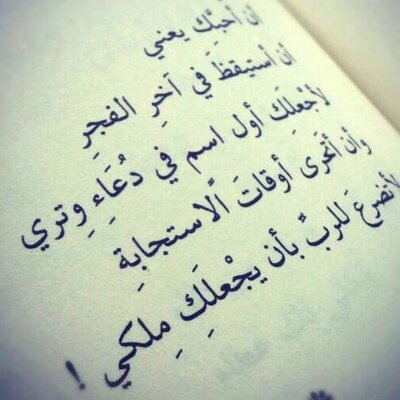 أن أحبّك يعني
أن أستيقظَ في آخرِ الفجرِ
لأجْعلَكِ أول اسم في دُعَاءِ وتري
وأن أتحرى أوقاتَ الاستجابةِ
لأتضرعَ للربّ بأن يجْعلَكِ مِلكي !